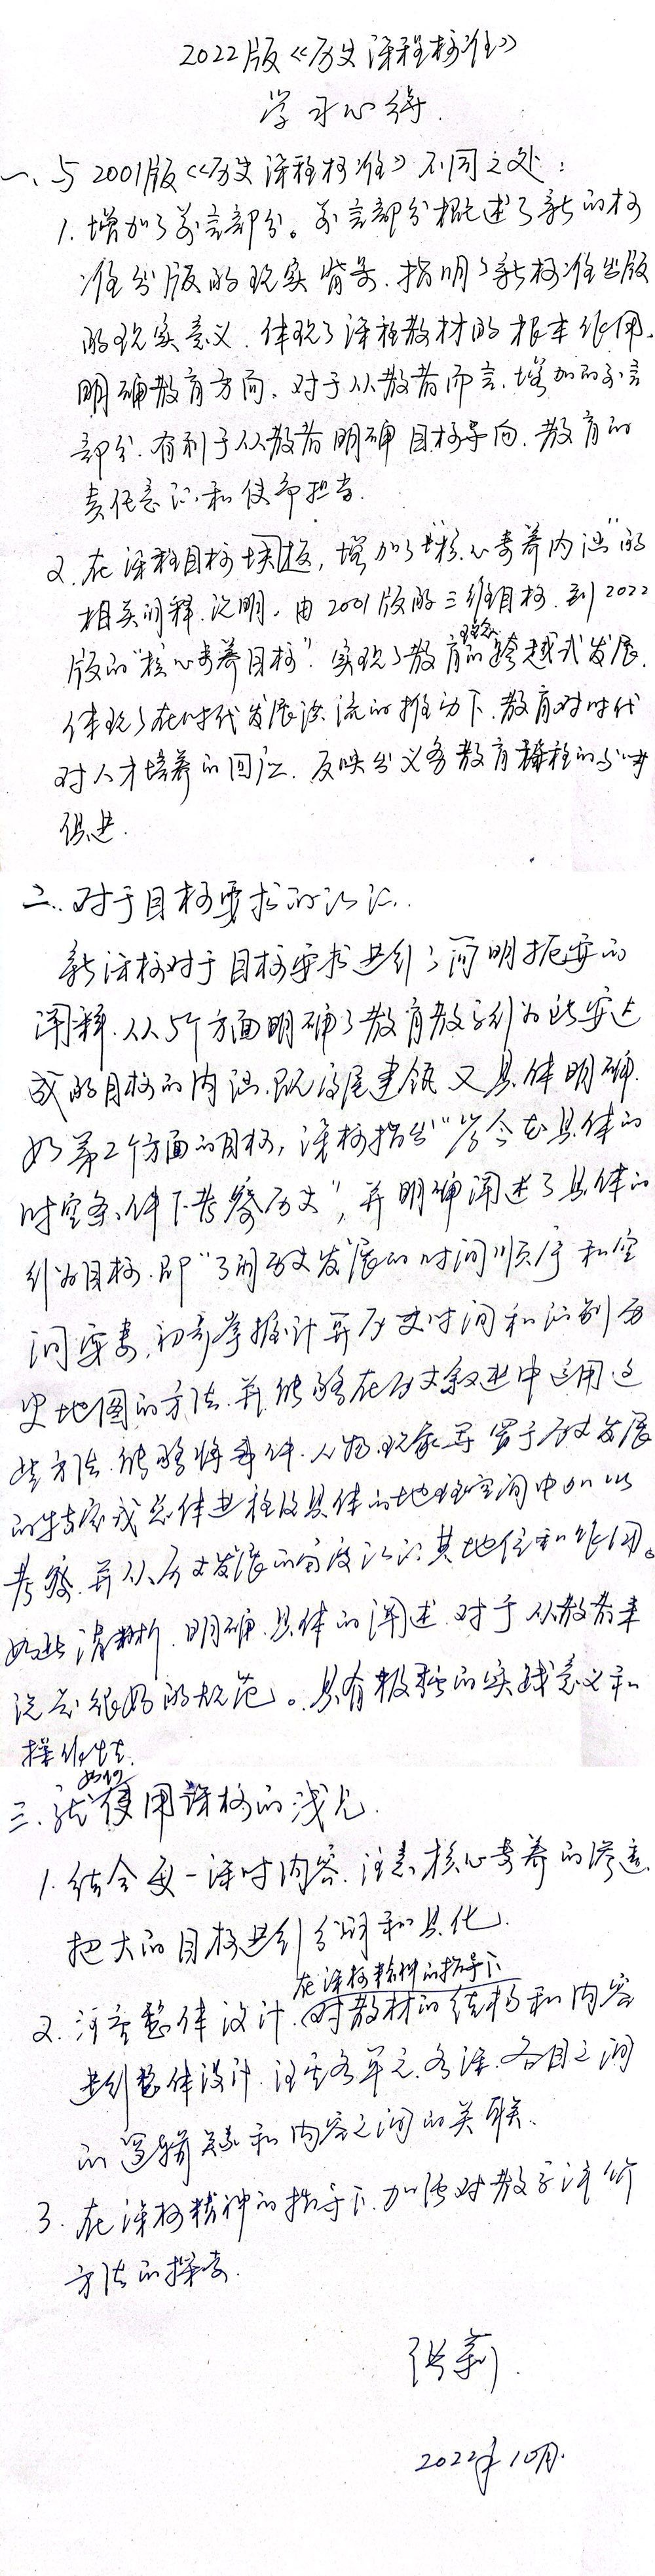 2022版《历史课程标准》
学习心得.
一、与2001版《历史课程标准》不同之处:
1. 增加了前言部分。前言部分概述了新的标
准出版的现实背景.指明了新标准出版
的现实意义.体现了课程教材的根本作用.
明确教育方向.对于从教者而言.增加的前言
部分.有利于从教者明确目标导向.教育的
责任意识和使命担当.
2. 在课程目标块版,增加了“核心素养内涵”的
相关阐释.说明.由2001版的三维目标.到2022
版的“核心素养目标”.实现了教育理念的跨越式发展.
体现了在时代发展洪流的推动下.教育对时代
对人才培养的回应.反映出义务教育课程的与时
俱进.
二. 对于目标要求的认识.
新课标对于目标要求进行了简明扼要的
阐释.从5个方面明确了教育教学行为所要达
成的目标的内涵.既高屋建瓴又具体明确.
如第2个方面的目标,课标指出“学会在具体的
时空条件下考察历史”,并明确阐述了具体的
行为目标.即“了解历史发展的时间顺序和空
间要素,初步掌握计算历史时间和识别历
史地图的方法.并能够在历史叙述中运用这
些方法.能够将事件.人物.现象等置于历史发展
的特定或总体进程及具体的地理空间中加以
考察.并从历史发展的角度认识其地位和作用。
如此清晰.明确.具体的阐述.对于从教者来
说是很好的规范。具有极强的实践意义和
操作性.
三.就如何使用课标的浅见.
1. 结合每一课时内容.注意核心素养的渗透.
把大的目标进行分解和具化.
2. 注重整体设计.在课标精神的指导下对教材的结构和内容
进行整体设计.注重各单元.各课.各目之间
的逻辑关系和内容之间的关联.
3. 在课标精神的指导下.加强对教学评价
方法的探索.
张莉.
2022年10月.